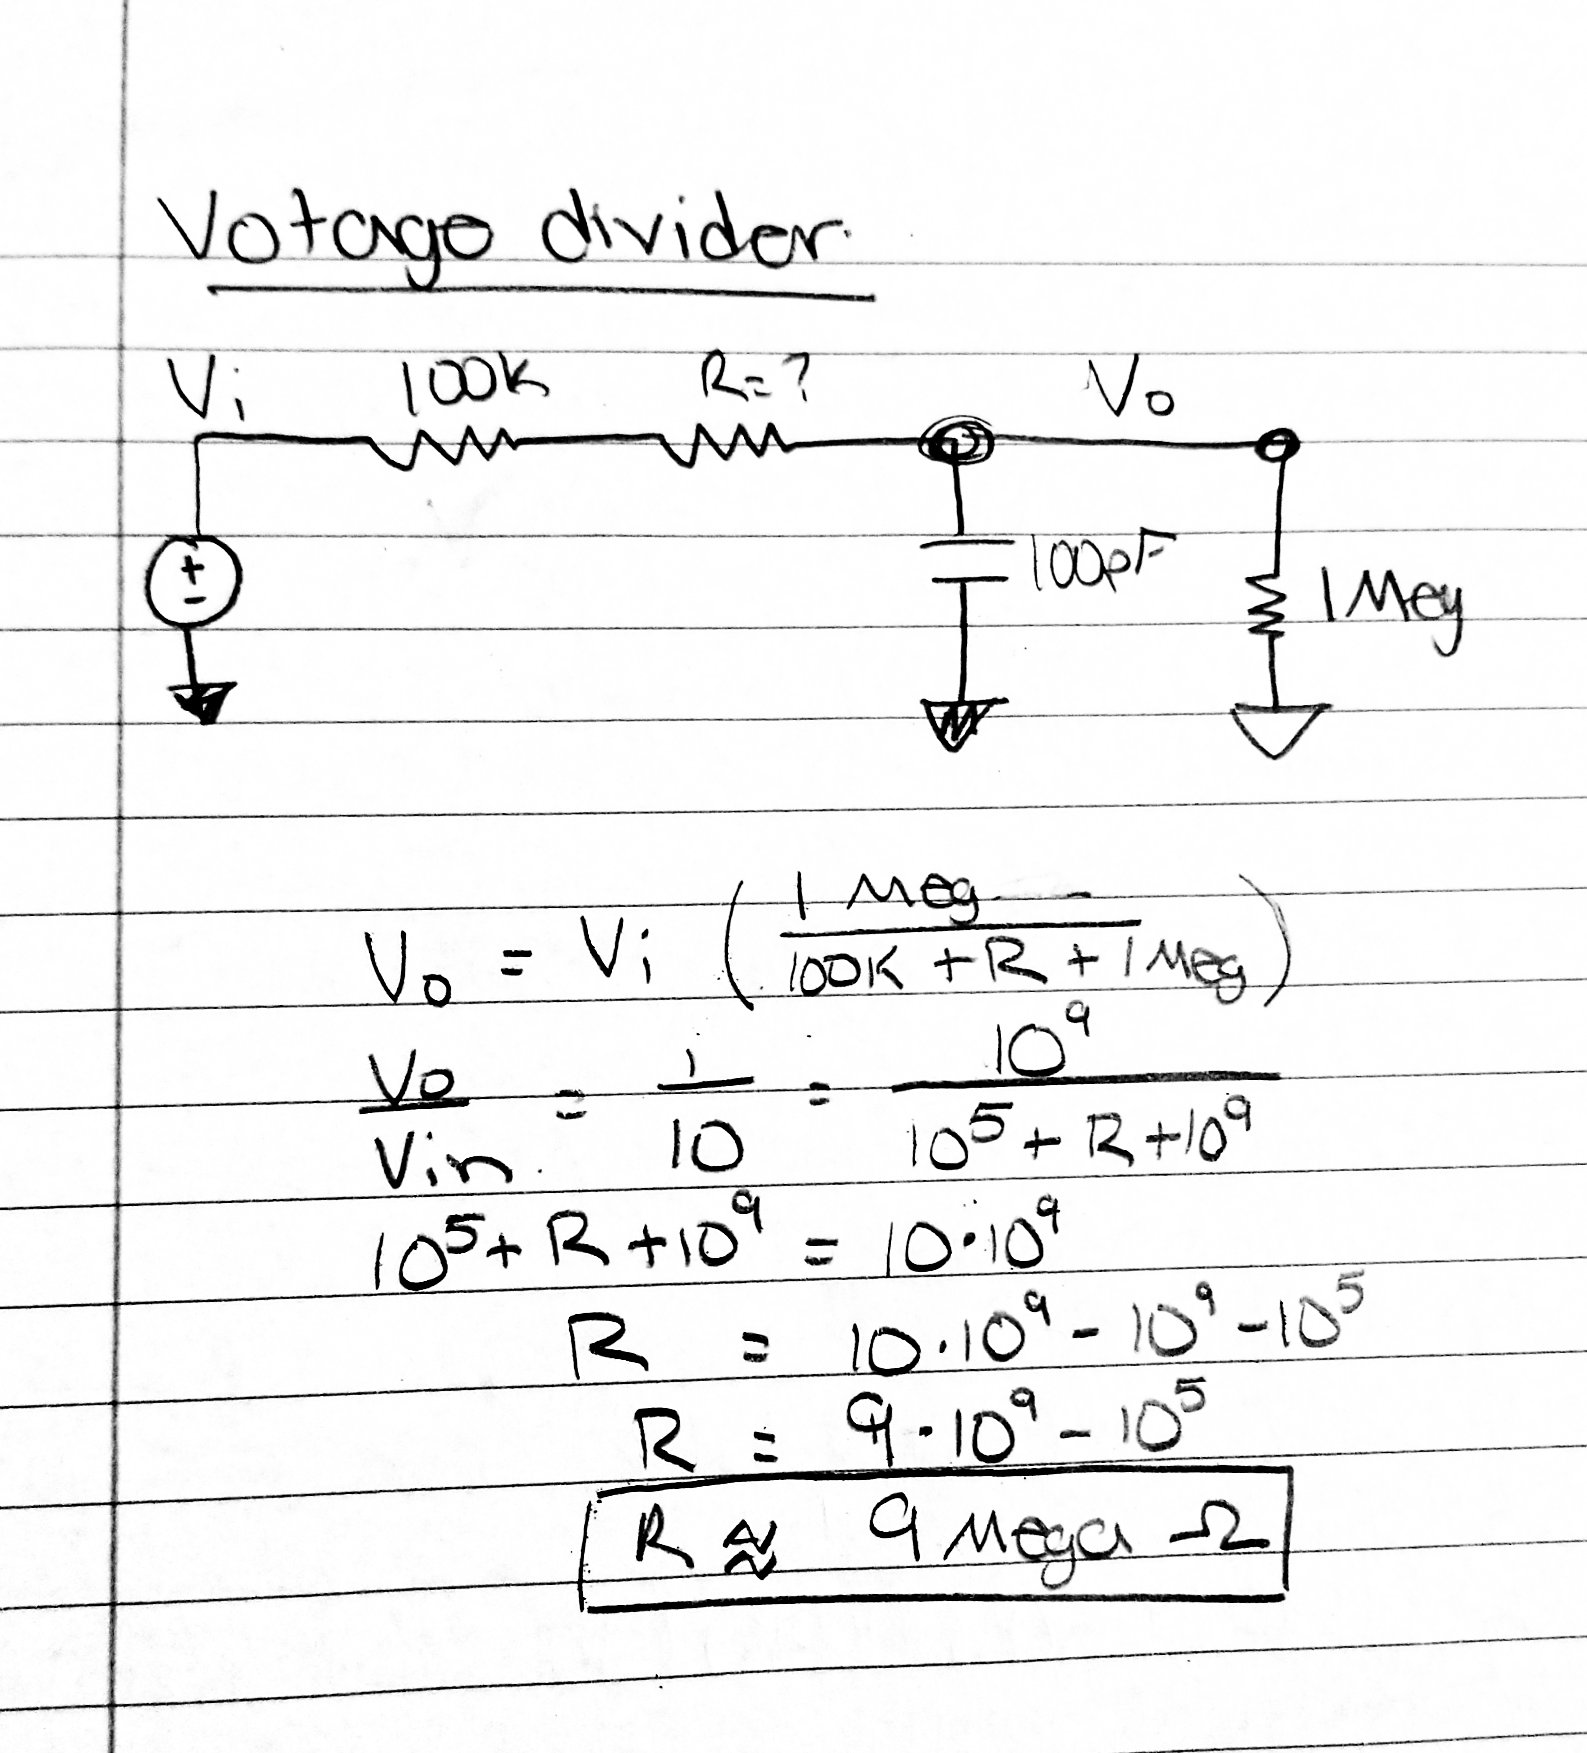 Votage divider
Vi 100K R=? Vo
+
-
100pF
1 Meg
Vo = Vi ( 1 Meg / 100K + R + 1 Meg )
Vo / Vin = 1 / 10 = 10⁹ / 10⁵ + R + 10⁹
10⁵ + R + 10⁹ = 10·10⁹
R = 10·10⁹ - 10⁹ - 10⁵
R = 9·10⁹ - 10⁵
R ≈ 9 Mega Ω